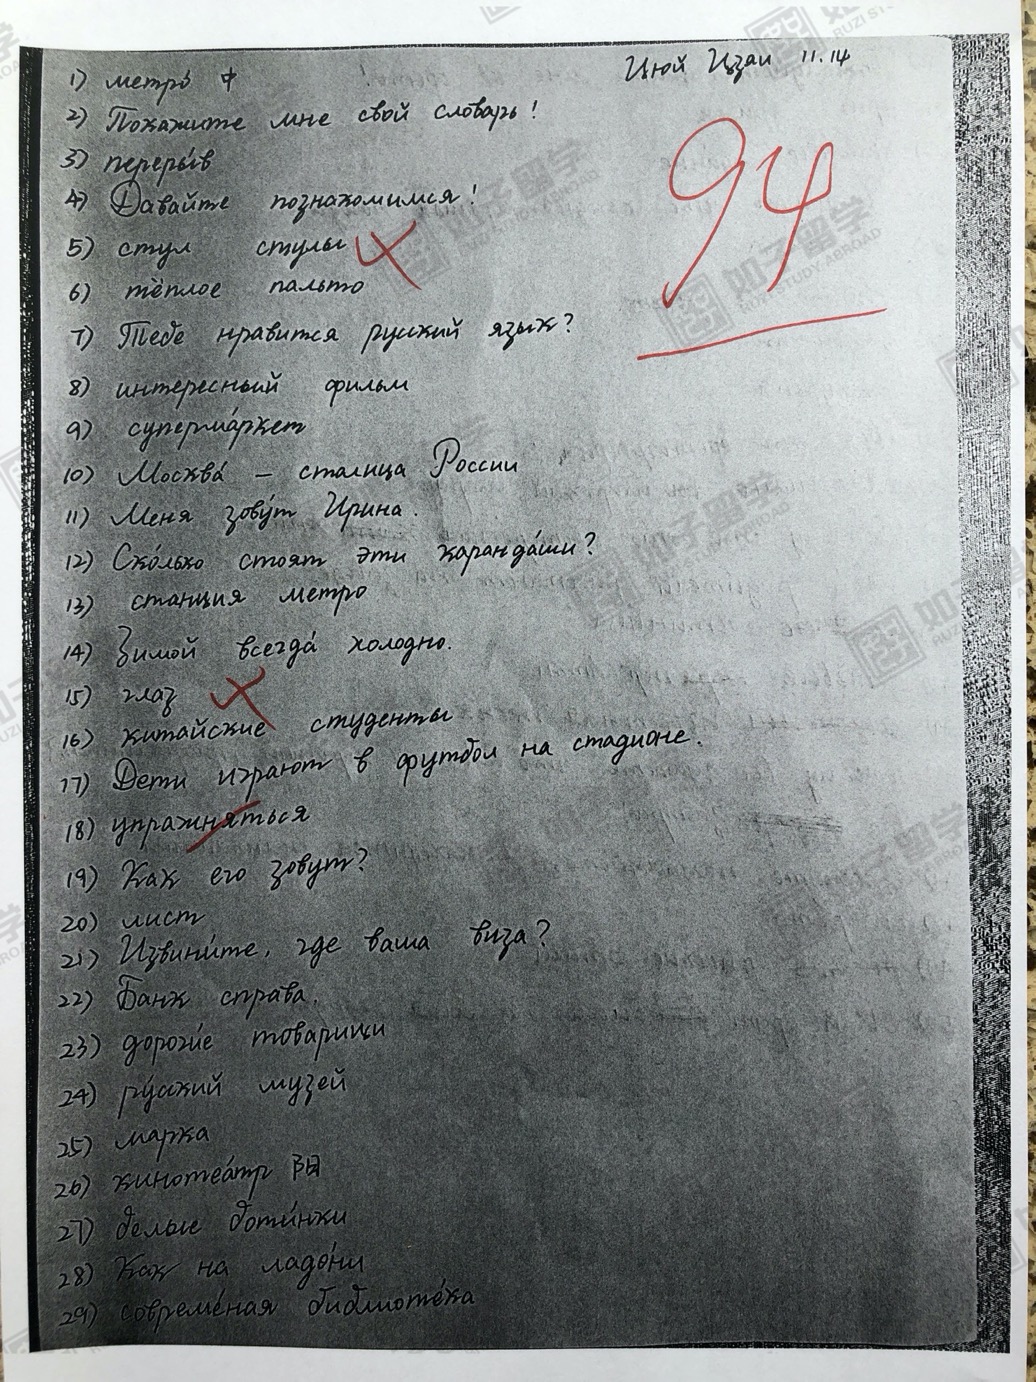 Цюй Цзаи 11.14
1) метро́ 中
94
2) Покажите мне свой словарь!
3) переры́в
4) Давайте познакомимся!
5) стул стулы
6) тёплое пальто
7) Тебе нравится русский язык?
8) интересный фильм
9) суперма́ркет
10) Москва́ – сталица России
11) Меня зову́т Ирина.
12) Ско́лько стоят эти каранда́ши?
13) станция метро
14) Зимой всегда́ холодно.
15) глаз
16) китайские студенты
17) Дети играют в футбол на стадионе.
18) упражняться
19) Как его зовут?
20) лист
21) Извини́те, где ваша виза?
22) Банк справа.
23) дороги́е товарищи
24) ру́сский музей
25) марка
26) кинотеа́тр 阳
27) белые боти́нки
28) Как на ладо́ни
29) совреме́ная библиоте́ка
如子留学
RUZI STUDY ABROAD